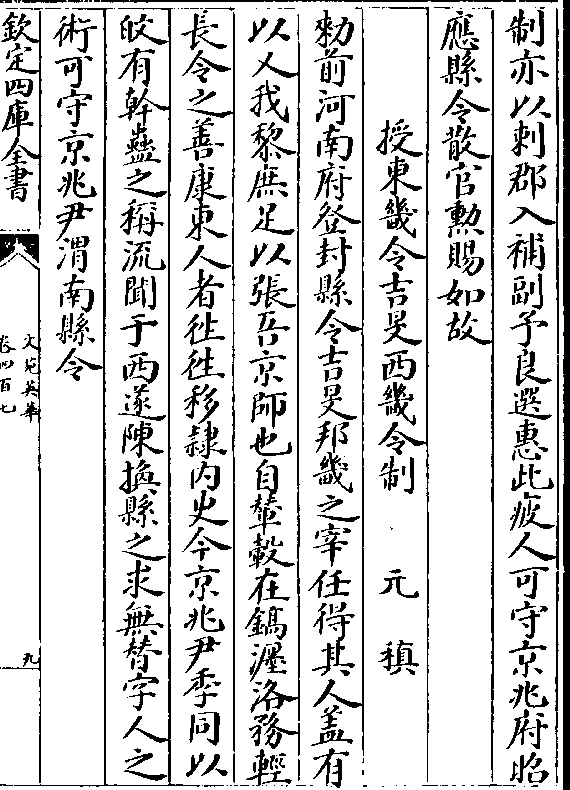 制亦以刺郡入補副予良選惠此疲人可守京兆府昭
應縣令散官勲賜如故
授東畿令吉旻西畿令制 元稹
勅前河南府登封縣令吉旻邦畿之宰任得其人蓋有
以入我黎庶足以張吾京師也自輦轂在鎬瀍洛務輕
長令之善康東人者徃徃移隸内史今京兆尹季同以
皎有幹蠱之稱流聞于西遂陳換縣之求無替字人之
術可守京兆尹渭南縣令
欽定四庫全書
文苑英華
卷四百七
九